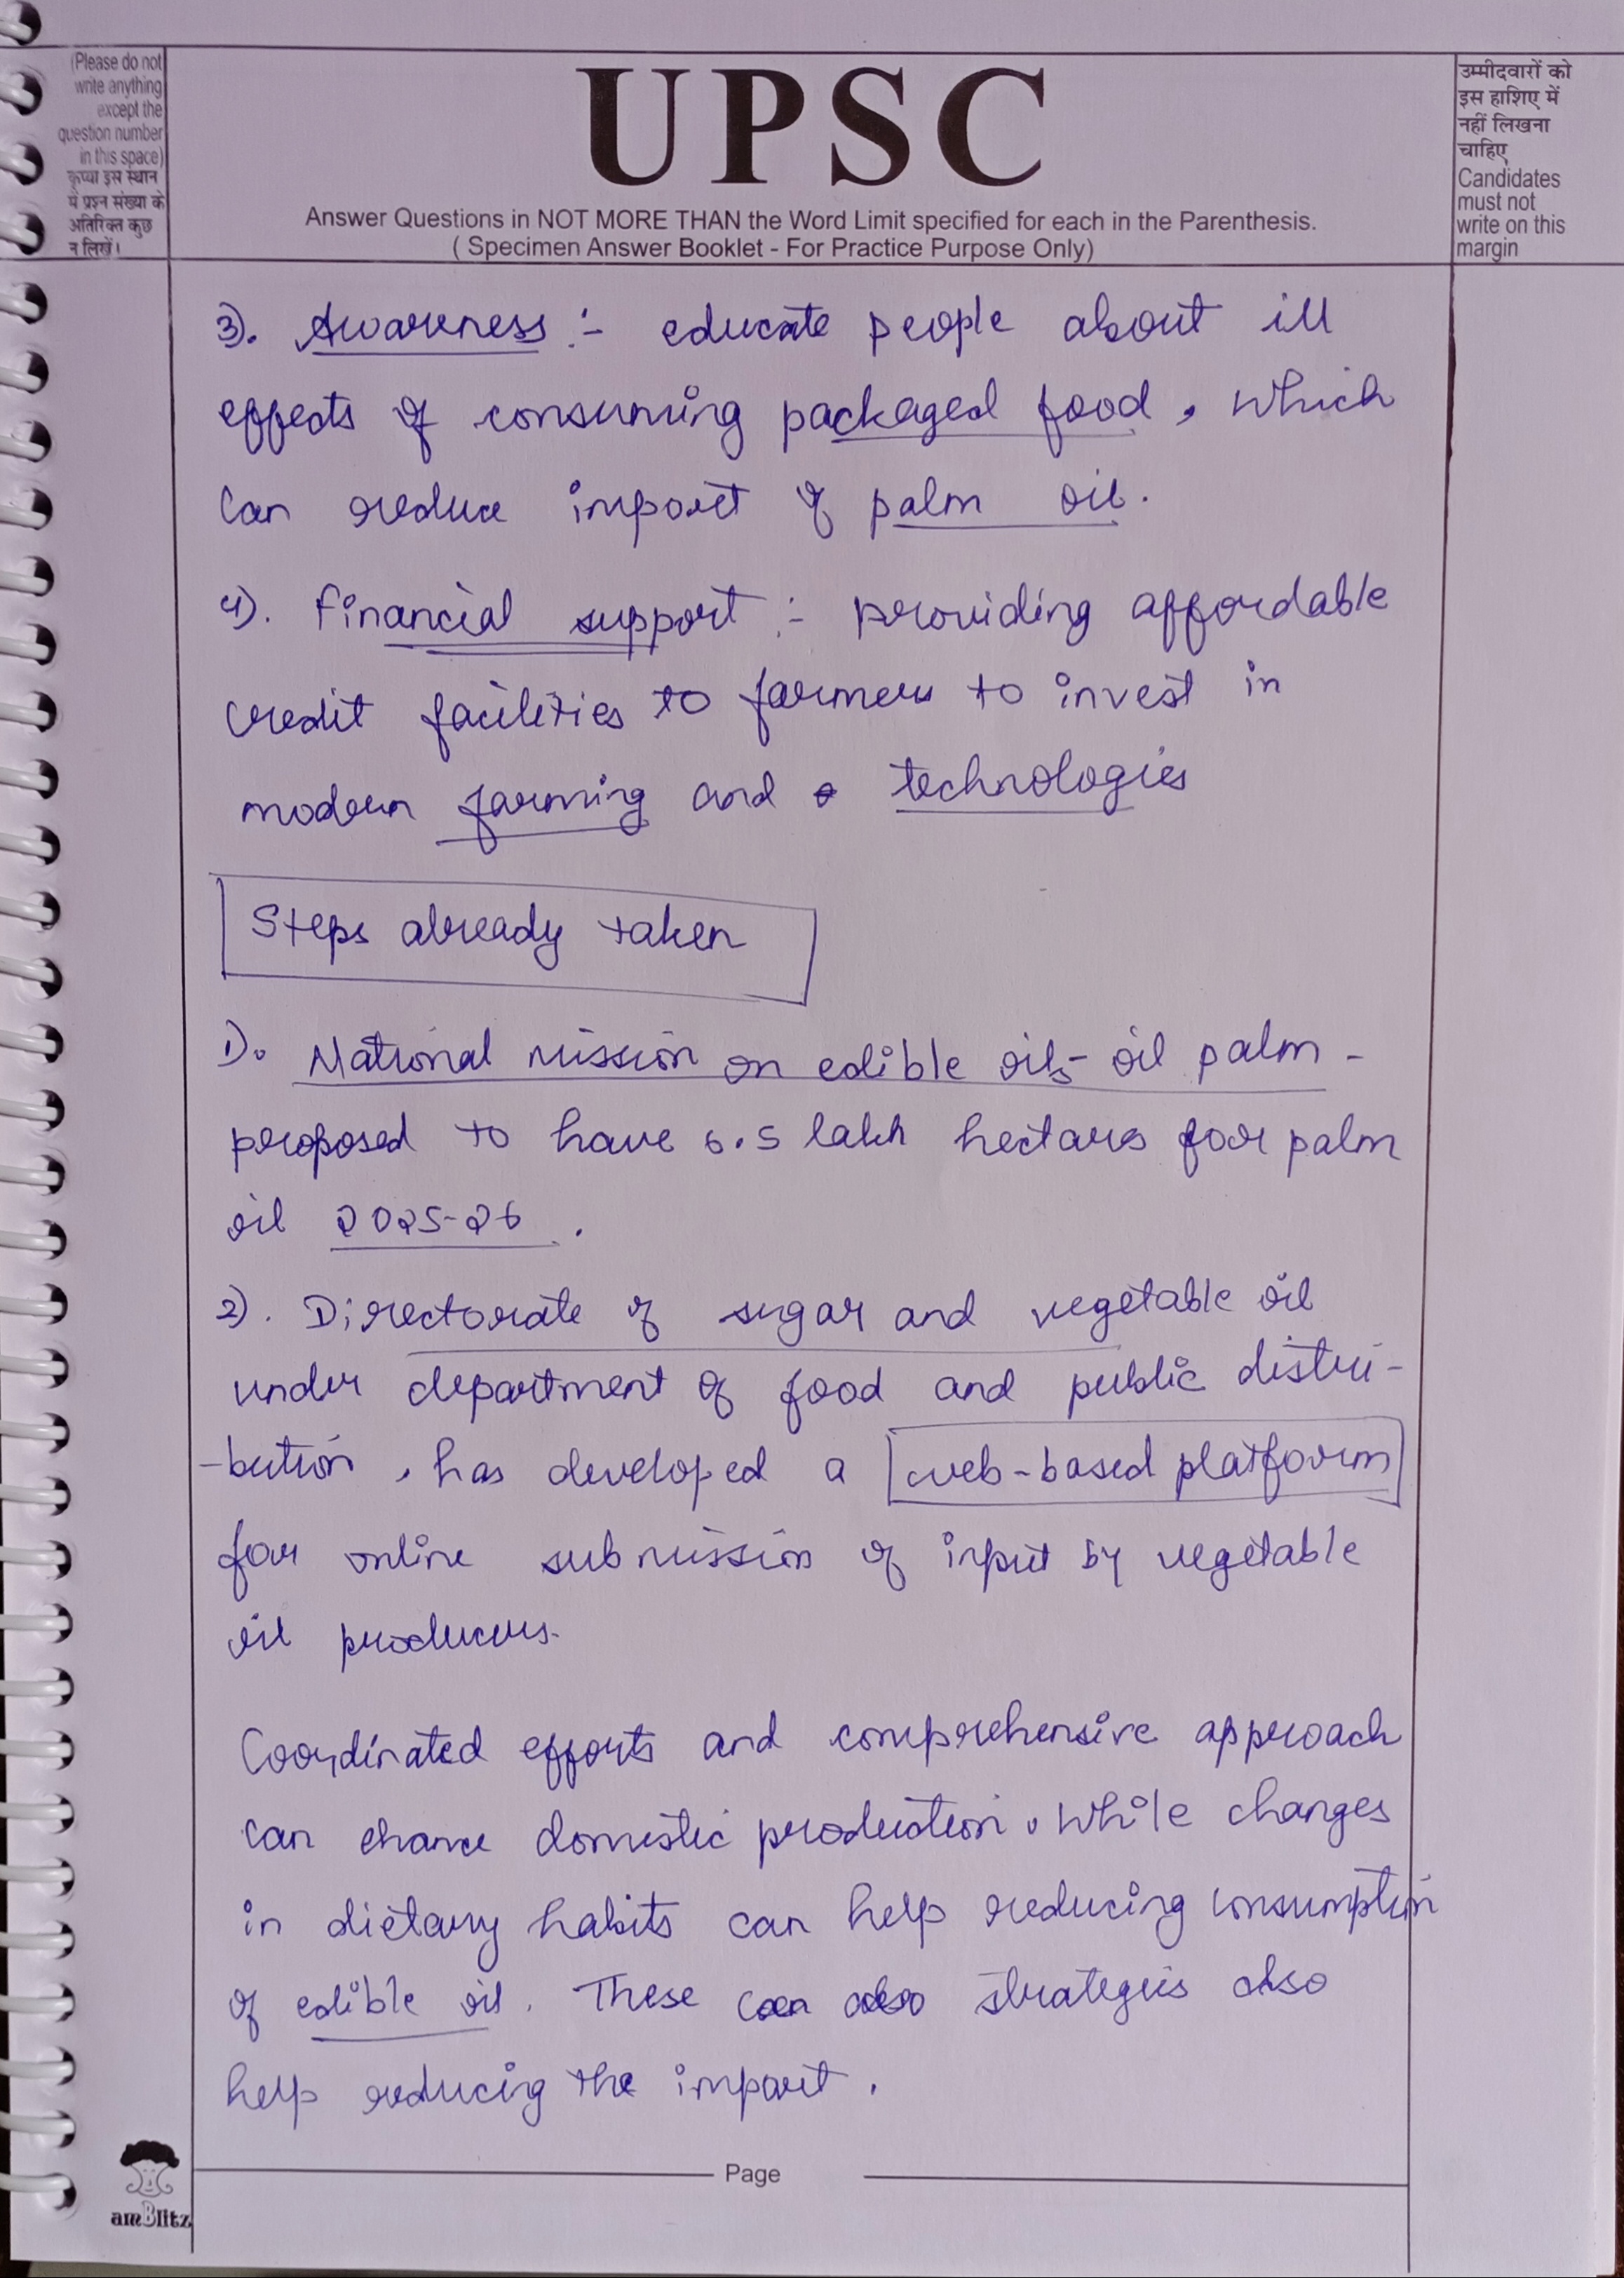 (Please do not
write anything
except the
question number
in this space)
कृप्या इस स्थान
में प्रश्न संख्या के
अतिरिक्त कुछ
न लिखें।
UPSC
Answer Questions in NOT MORE THAN the Word Limit specified for each in the Parenthesis.
( Specimen Answer Booklet - For Practice Purpose Only)
उम्मीदवारों को
इस हाशिए में
नहीं लिखना
चाहिए
Candidates
must not
write on this
margin
3). Awareness :- educate people about ill
effects of consuming packaged food, which
can reduce import of palm oil.
4). Financial support :- providing affordable
credit facilities to farmers to invest in
modern farming and technologies
Steps already taken
1). National mission on edible oils- oil palm -
proposed to have 6.5 lakh hectares for palm
oil 2025-26.
2). Directorate of sugar and vegetable oil
under department of food and public distri-
-bution, has developed a web-based platform
for online submission of input by vegetable
oil producers.
Coordinated efforts and comprehensive approach
can ehance domestic production. While changes
in dietary habits can help reducing consumption
of edible oil. These can also strategies also
help reducing the import.
Page
amBlitz